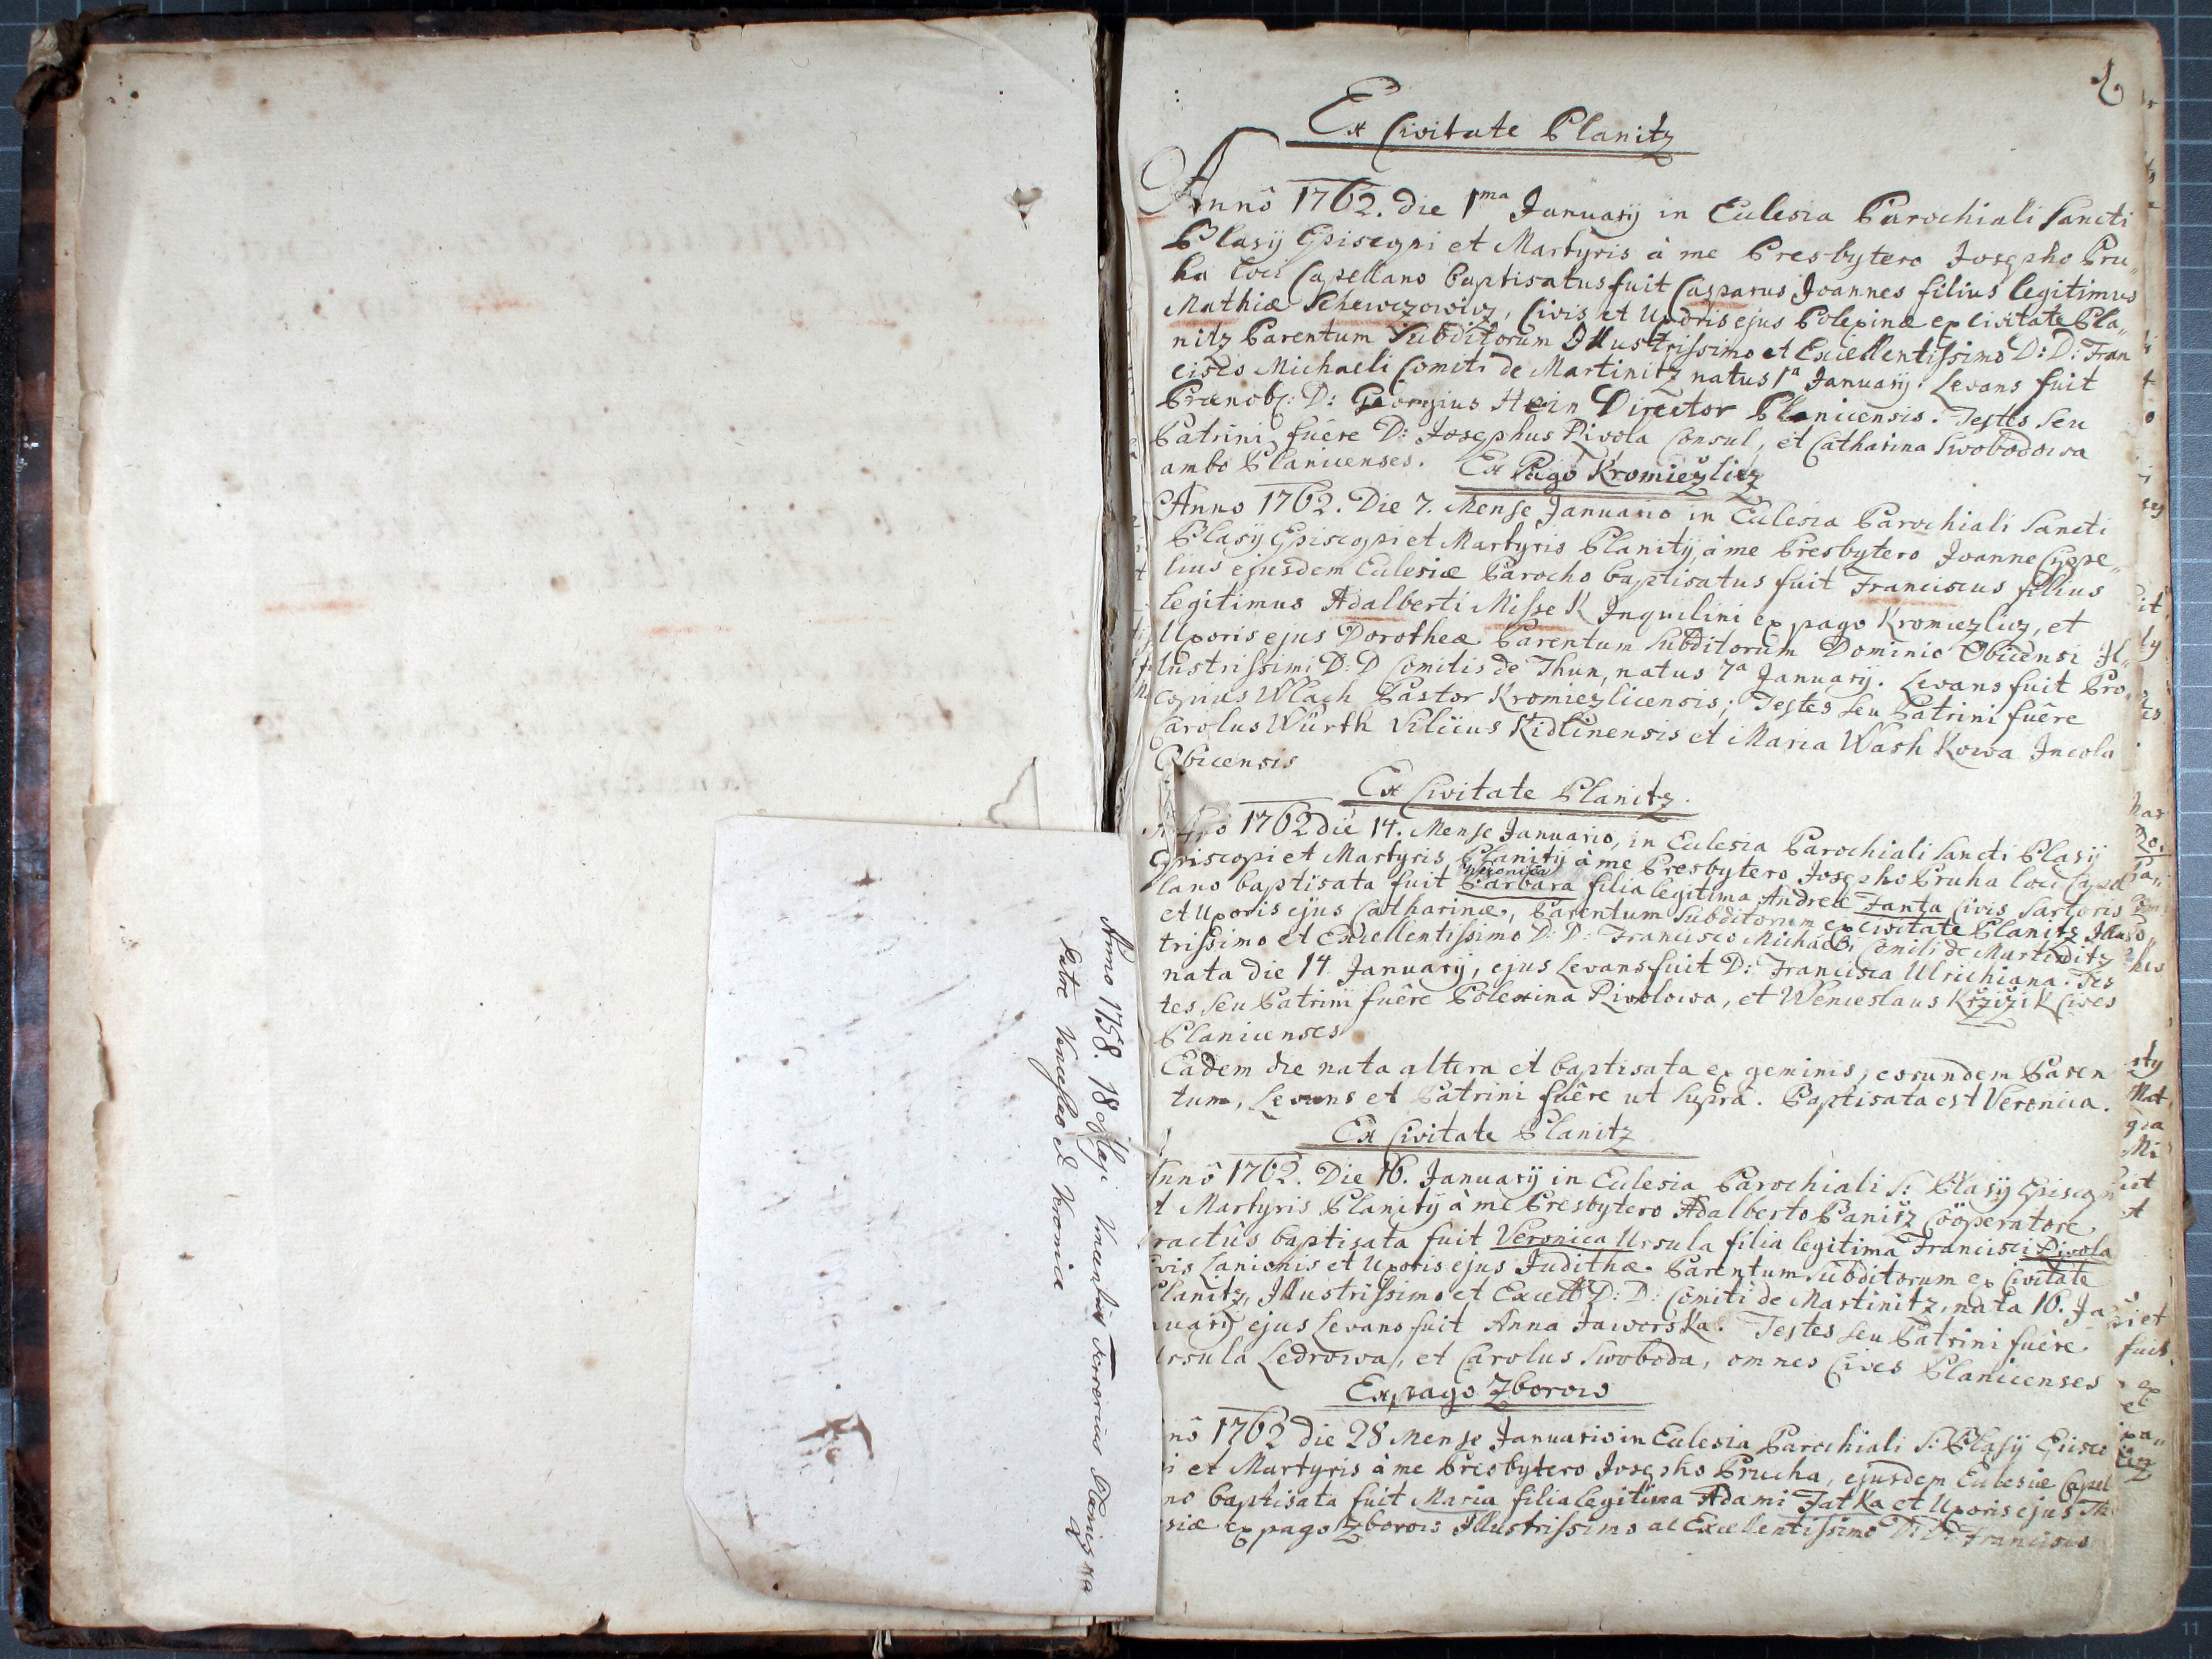 1
Ex Civitate Planitz
Annô 1762. die 1ma Januarij in Eclesia Parochiali Sancti
Blasij Episcopi et Martyris à me Presbytero Josepho Pru„
ha loci Capellano baptisatus fuit Casparus Joannes filius legitimus
Mathiæ Schewczowicz, Civis et Uxoris ejus Polexinæ ex civitate Pla„
nitz Parentum Subditorum Illustrissimo et Excellentissimo D: D: Fran
cisco Michaeli Comiti de Martinitz natus 1a Januarij. Levans fuit
Prænob: D: Georgius Hein Director Planicensis. Testes seu
Patrini fuêre D: Josephus Rivola Consul, et Catharina Swobodowa
ambo Planicenses.
Ex Pago Kromiežlicz
Anno 1762. Die 7. Mense Januario in Eclesia Parochiali Sancti
Blasij Episcopi et Martyris Planitij, à me Presbytero Joanne Cyppe„
lius ejusdem Eclesiæ Parocho baptisatus fuit Franciscus filius
legitimus Adalberti Misse K Inquilini ex pago Kromiezlicz, et
Uxoris ejus Dorotheæ Parentum Subditorum Dominio Obicensi Il„
lustrissimi D: D Comitis de Thun, natus 7a Januarij. Levans fuit Pro„
copius Wlach Pastor Kromiezlicensis; Testes seu Patrini fuêre
Carolus Würth Vilicus Kidlinensis et Maria Wash Kowa Incola
Obicensis
Ex Civitate Planitz.
1762 die 14. Mense Januario, in Eclesia Parochiali Sancti Blasij
Episcopi et Martyris Planitij à me Presbytero Josepho Pruha loci Capel
Veronica
lano baptisata fuit Barbara filia legitima Andreæ Fanta Civis Sartoris
et Uxoris ejus Catharinæ, Parentum Subditorum ex civitate Planitz Illus
trissimo et Excellentissimo D: D: Francisco Michaeli Comiti de Martinitz
nata die 14 Januarij, ejus Levans fuit D: Francisca Ulrichiana. Tes
tes seu Patrini fuêre Polexina Rivolowa, et Wenceslaus Kržižik Cives
Planicenses
Eadem die nata altera et baptisata ex geminis, eorundem Paren
tum, Levans et Patrini fuêre ut Supra. Baptisata est Veronica.
Ex Civitate Planitz
Annô 1762. Die 16. Januarij in Eclesia Parochiali S: Blasij Episcopi
t Martyris Planitij à me Presbytero Adalberto Panitz Cooperatore
ractûs baptisata fuit Veronica Ursula filia legitima Francisci Rivola
ivis Lanionis et Uxoris ejus Judithæ Parentum Subditorum ex Civitate
Planitz, Illustrissimo et Excell D: D: Comiti de Martinitz, nata 16. Ja
nuarij ejus Levans fuit Anna Jaworska. Testes seu Patrini fuêre
Ursula Ledrowa, et Carolus Swoboda, omnes Cives Planicenses
Ex pago Zborow
nô 1762 die 28 Mense Januario in Eclesia Parochiali S: Blasij Episco
i et Martyris à me Presbytero Josepho Prucha, ejusdem Eclesiæ Capel
no baptisata fuit Maria filia legitima Adami Fatka et Uxoris ejus The
siæ ex pago Zborow Illustrissimo ac Excellentissimo D: D: Francisco
Anno 1758. 18 Maji Vincentius Ferrerius Planiz
Patre Venceslao et Veronica